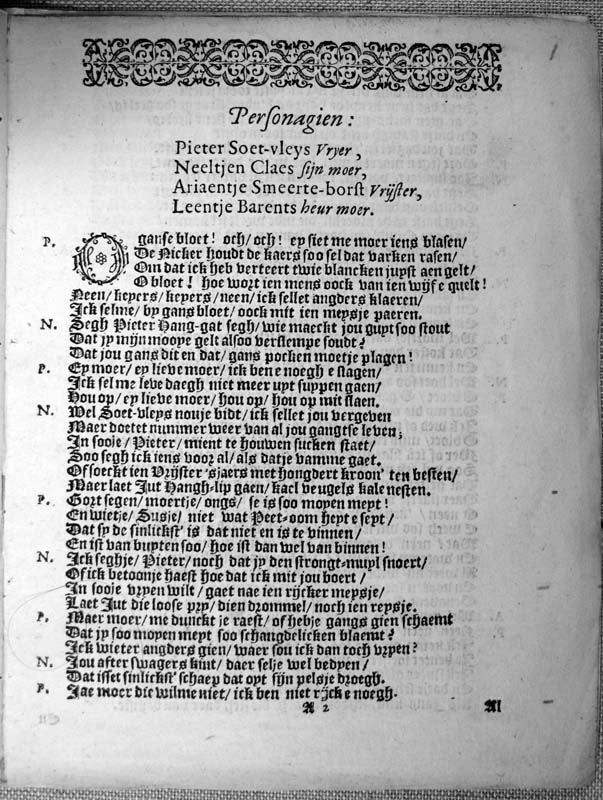 Personagien:
Pieter Soet-vleys Vryer,
Neeltjen Claes sijn moer,
Ariaentje Smeerte-borst Vrijster,
Leentje Barents heur moer.
P. O ganse bloet! och/ och! ey siet me moer iens blasen/
De Nicker houdt de kaers soo sel dat varken rasen/
Om dat ick heb verteert twie blancken juyst aen gelt/
O bloet! hoe wort ien mens oock van ien wijf e quelt!
Neen/ keyers/ keyers/ neen/ ick sellet angders klaeren/
Ick selme/ by gans bloet/ oock mit ien meysje paeren.
N. Segh Pieter Hang-gat segh/ wie maeckt jou guyt soo stout
Dat jy mijn mooye gelt alsoo verslempe soudt?
Dat jou gans dit en dat/ gans pocken moetje plagen!
P. Ey moer/ ey lieve moer/ ick ben e noegh e slagen/
Ick sel me leve daegh niet meer uyt suypen gaen/
Hou op/ ey lieve moer/ hou op/ hou op mit slaen.
N. Wel Soet-vleys nou je bidt/ ick sellet jou vergeven
Maer doetet nummer weer van al jou gangtse leven;
In sooje/ Pieter/ mient te houwen sucken staet/
Soo segh ick iens voor al/ als dat je vamme gaet.
Of soeckt ien Vrijster 'sjaers met hongdert kroon' ten besten/
Maer laet Jut Hangh-lip gaen/ kael veugels kale nesten.
P. Gort segen/ moertje/ ongs/ se is soo moyen meyt!
En wietje/ Susje/ niet wat Peet-oom heyt e seyt/
Dat sy de sinlickst' is dat niet en is te vinnen/
En ist van buyten soo/ hoe ist dan wel van binnen!
N. Ick seghje/ Pieter/ noch dat jy den strongt-muyl snoert/
Of ick betoonje haest hoe dat ick mit jou boert/
In sooje vryen wilt/ gaet nae ien rijcker meysje/
Laet Jut die loose pry/ dien drommel/ noch ien reysje.
P. Maer moer/ me dunckt je raest/ of hebje gangs gien schaemt
Dat jy soo moyen meyt soo schangdelicken blaemt?
Ick wieter angders gien/ waer sou ick dan toch vryen?
N. Jou after swagers kint/ daer selje wel bedyen/
Dat isset sinlickst' schaep dat oyt sijn pelsje droegh.
P. Jae moer die wilme niet/ ick ben niet rijck e noegh.
A 2 Al